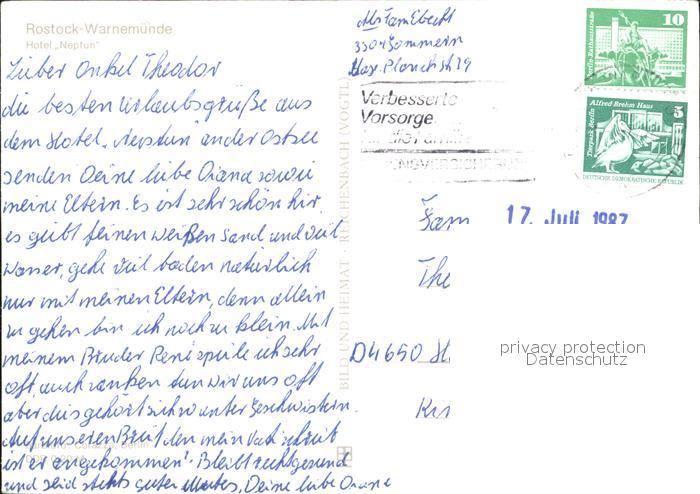 Rostock-Warnemünde
Hotel „Neptun"
Lieber Onkel Theodor
die besten Urlaubsgrüße aus
dem Hotel „Neptun" an der Ostsee
senden Deine liebe Diana sowie
meine Eltern. Es ist sehr schön hir,
es geibt feinen weißen Sand und viel
wasser, gehe viel baden natürlich
nur mit meinen Eltern, denn allein
zu gehen bin ich noch zu klein. Mit
meinem Bruder Renè spiele ich sehr
oft, auch zanken tun wir uns oft
aber dies gehört sich so unter Geschwistern.
Auf unseren Brief den mein Vati schrieb
ist er angekommen? Bleibt recht gesund
und seid stehts guten Mutes, Deine liebe Diana
Abs. Fam Ebecht
3304 Gommern
Max. Planck st 19
Verbesserte
Vorsorge
die Familie
10
Berlin-Rathausstraße
5
Alfred Brehm Haus
Tierpark Berlin
DEUTSCHE DEMOKRATISCHE REPUBLIK
17. Juli 1987
Fam
The
D4650
privacy protection
Datenschutz
BILD UND HEIMAT · REICHENBACH (VOGTL)